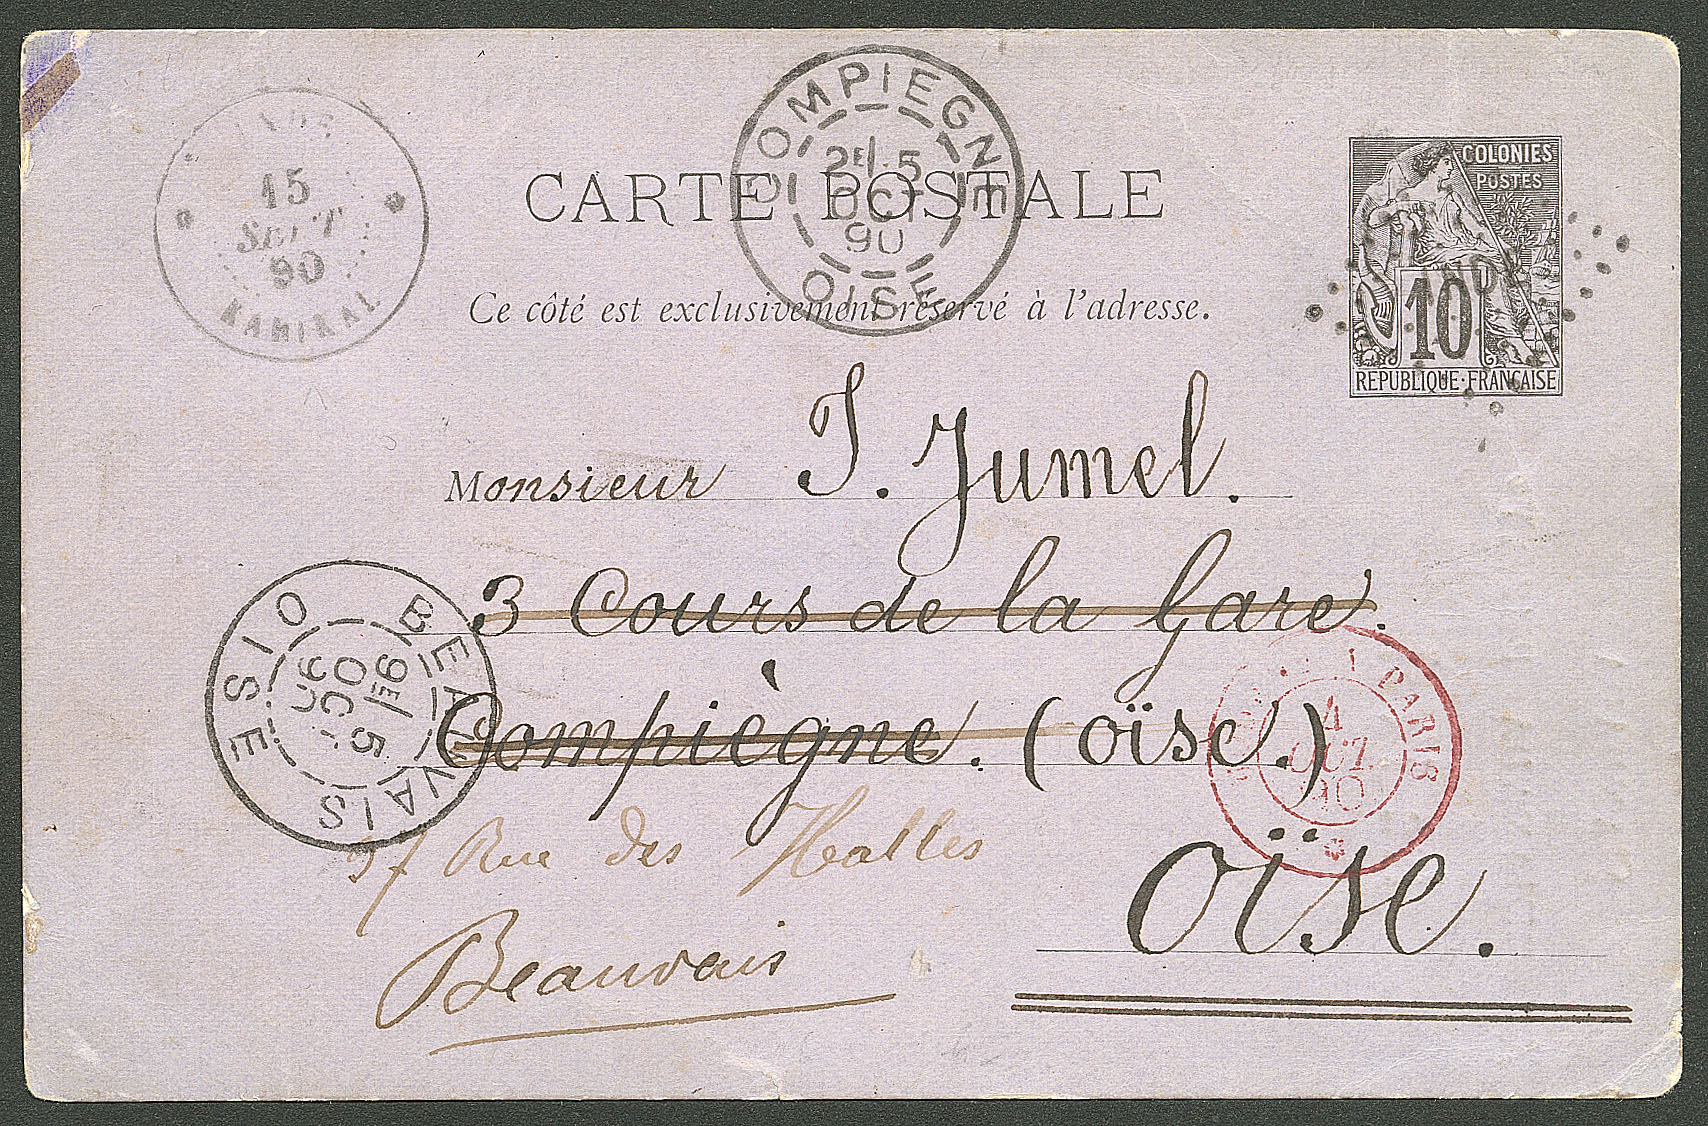 15
SEPT
90
KARIKAL
COMPIEGNE
2E 5
OCT
90
OISE
COLONIES
POSTES
10
REPUBLIQUE·FRANÇAISE
CARTE POSTALE
Ce côté est exclusivement réservé à l'adresse.
Monsieur J. Jumel.
3 Cours de la Gare.
Compiègne. (oïse.)
BEAUVAIS
9E 5
OCT
90
OISE
A PARIS
4
OCT
90
Rue des Halles
oïse.
Beauvais